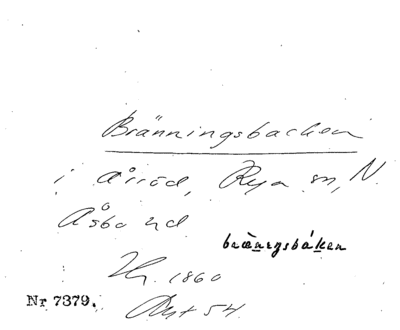 Bränningsbacken
i Årröd, Rya sn, N.
Åsbo hd
bräningsbáken
1860
Nr 7379.